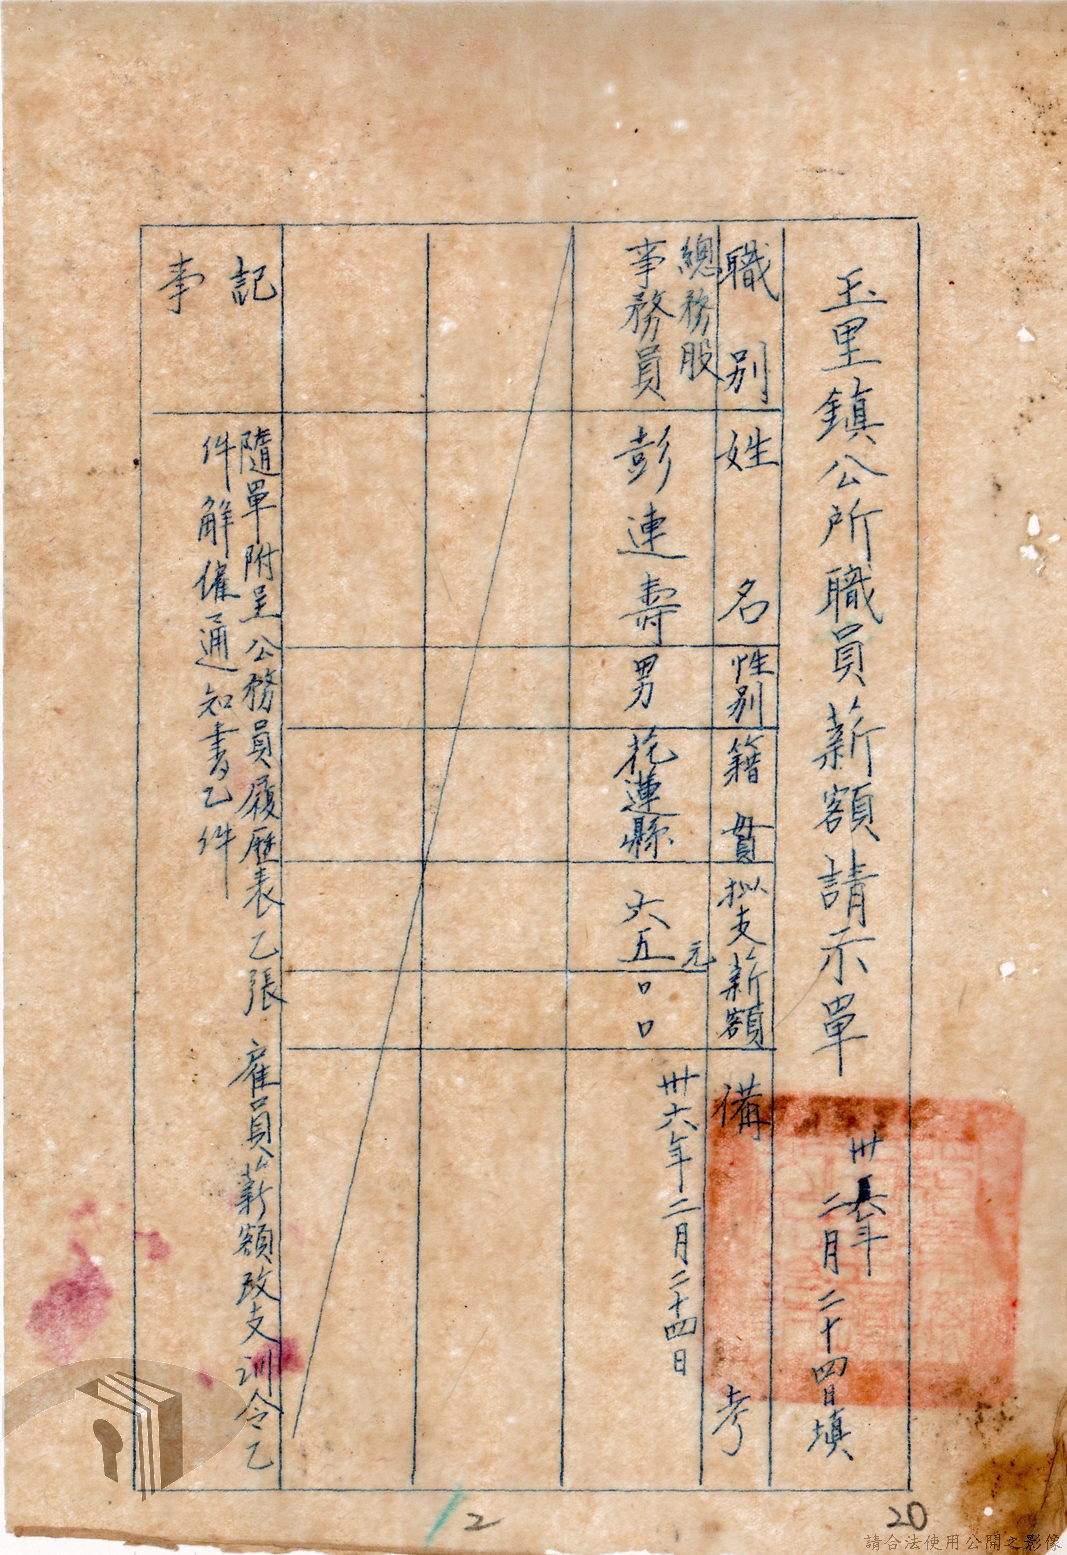 玉里鎮公所職員薪額請示單
卅六年
二月二十四日填
職別
姓名
性別
籍貫
拟支薪額
備考
總務股
事務員
彭連壽
男
花蓮縣
元
六五〇〇
卅六年二月二十四日
記事
隨單附呈公務員履歷表乙張 雇員薪額改支訓令乙
件解僱通知書乙件
2
20
請合法使用公開之影像